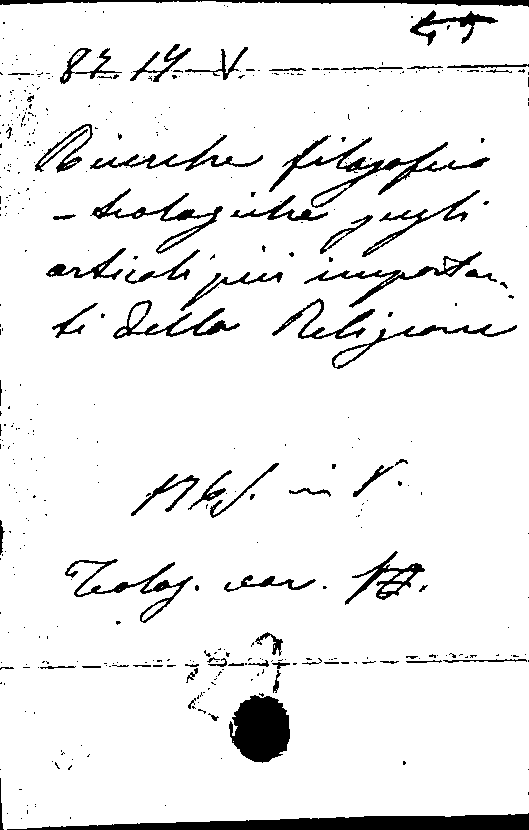 87. 14. V.
Ricerche filosofico
- teologiche sugli
articoli più importan-
ti della Religione
in 8.
Teolog. var.